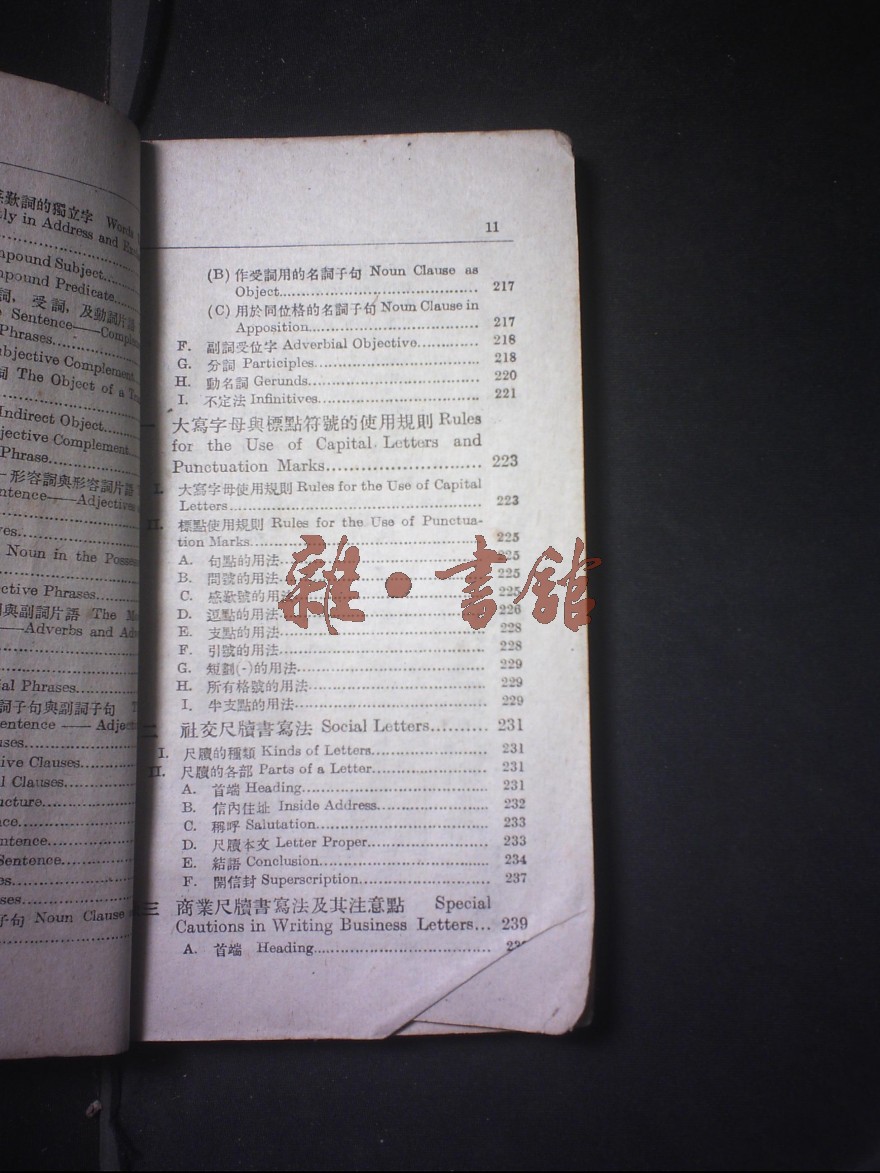 歎詞的獨立字 Words
in Address and
Compound Subject
Compound Predicate
詞, 受詞, 及動詞片語
Sentence——
Phrases
Subjective Complement
詞 The Object of a
Indirect Object
Objective Complement
Phrase
形容詞與形容詞片語
Sentence——Adjectives
Noun in the
Adjective Phrases
與副詞片語 The
——Adverbs and
Phrases
詞子句與副詞子句
Sentence ——
Clauses
Clauses
Clauses
Structure
Sentence
Sentence
子句 Noun Clause
11
(B) 作受詞用的名詞子句 Noun Clause as
Object 217
(C) 用於同位格的名詞子句 Noun Clause in
Apposition 217
F. 副詞受位字 Adverbial Objective 218
G. 分詞 Participles 218
H. 動名詞 Gerunds 220
I. 不定法 Infinitives 221
一 大寫字母與標點符號的使用規則 Rules
for the Use of Capital Letters and
Punctuation Marks 223
I. 大寫字母使用規則 Rules for the Use of Capital
Letters 223
II. 標點使用規則 Rules for the Use of Punctua-
tion Marks 225
A. 句點的用法 225
B. 問號的用法 225
C. 感歎號的用法 225
D. 逗點的用法 226
E. 支點的用法 228
F. 引號的用法 228
G. 短劃(-)的用法 229
H. 所有格號的用法 229
I. 半支點的用法 229
二 社交尺牘書寫法 Social Letters 231
I. 尺牘的種類 Kinds of Letters 231
II. 尺牘的各部 Parts of a Letter 231
A. 首端 Heading 231
B. 信內住址 Inside Address 232
C. 稱呼 Salutation 233
D. 尺牘本文 Letter Proper 233
E. 結語 Conclusion 234
F. 開信封 Superscription 237
三 商業尺牘書寫法及其注意點 Special
Cautions in Writing Business Letters 239
A. 首端 Heading
雜·書館